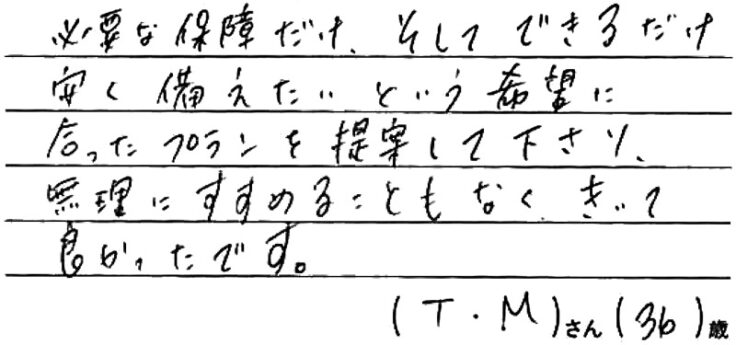 必要な保障だけ、そしてできるだけ
安く備えたいという希望に
合ったプランを提案して下さり、
無理にすすめることもなく、きいて
良かったです。
(T・M)さん(36)歳